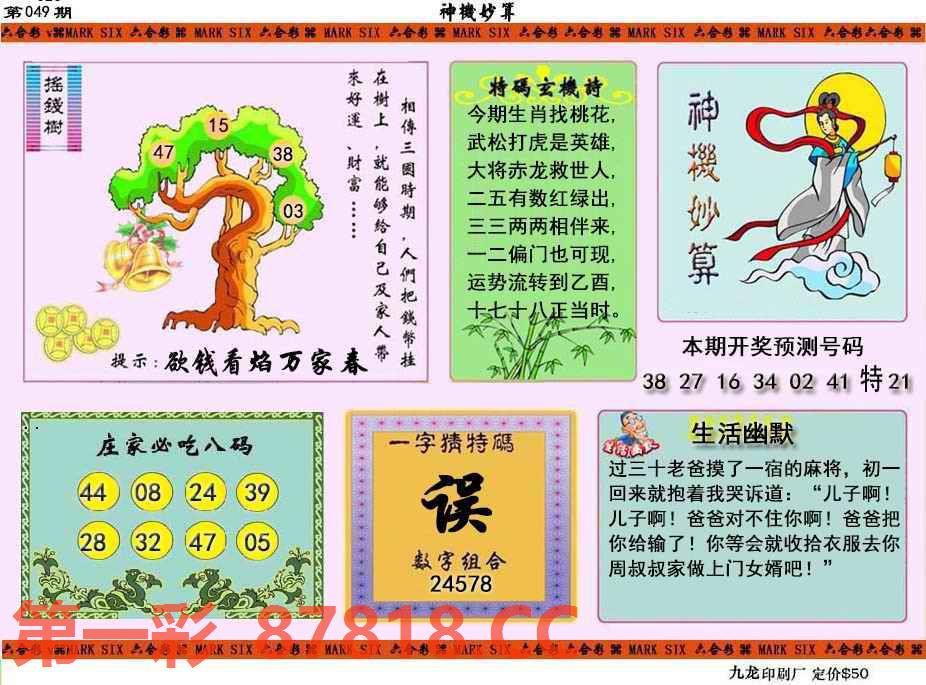 第049期
神機妙算
六合彩 MARK SIX 六合彩 MARK SIX 六合彩 MARK SIX 六合彩 MARK SIX 六合彩 六合彩 MARK SIX 六合彩 MARK SIX 六合彩六合彩
搖錢樹
相傳三國時期，人們把錢幣挂
在樹上，就能够給自己及家人帶
來好運、財富……
15
47
38
03
提示：欲钱看焰万家春
特碼玄機詩
今期生肖找桃花，
武松打虎是英雄，
大将赤龙救世人，
二五有数红绿出，
三三两两相伴来，
一二偏门也可现，
运势流转到乙酉，
十七十八正当时。
神機妙算
本期开奖预测号码
38 27 16 34 02 41 特21
庄家必吃八码
44 08 24 39
28 32 47 05
一字猜特碼
误
数字组合
24578
生活幽默
生活幽默
过三十老爸摸了一宿的麻将，初一
回来就抱着我哭诉道：“儿子啊！
儿子啊！爸爸对不住你啊！爸爸把
你给输了！你等会就收拾衣服去你
周叔叔家做上门女婿吧！”
第一彩 87818.CC
六合彩 MARK SIX 六合彩 MARK SIX 六合彩 MARK SIX 六合彩 MARK SIX 六合彩 六合彩 MARK SIX 六合彩 MARK SIX 六合彩六合彩
九龙印刷厂 定价$50